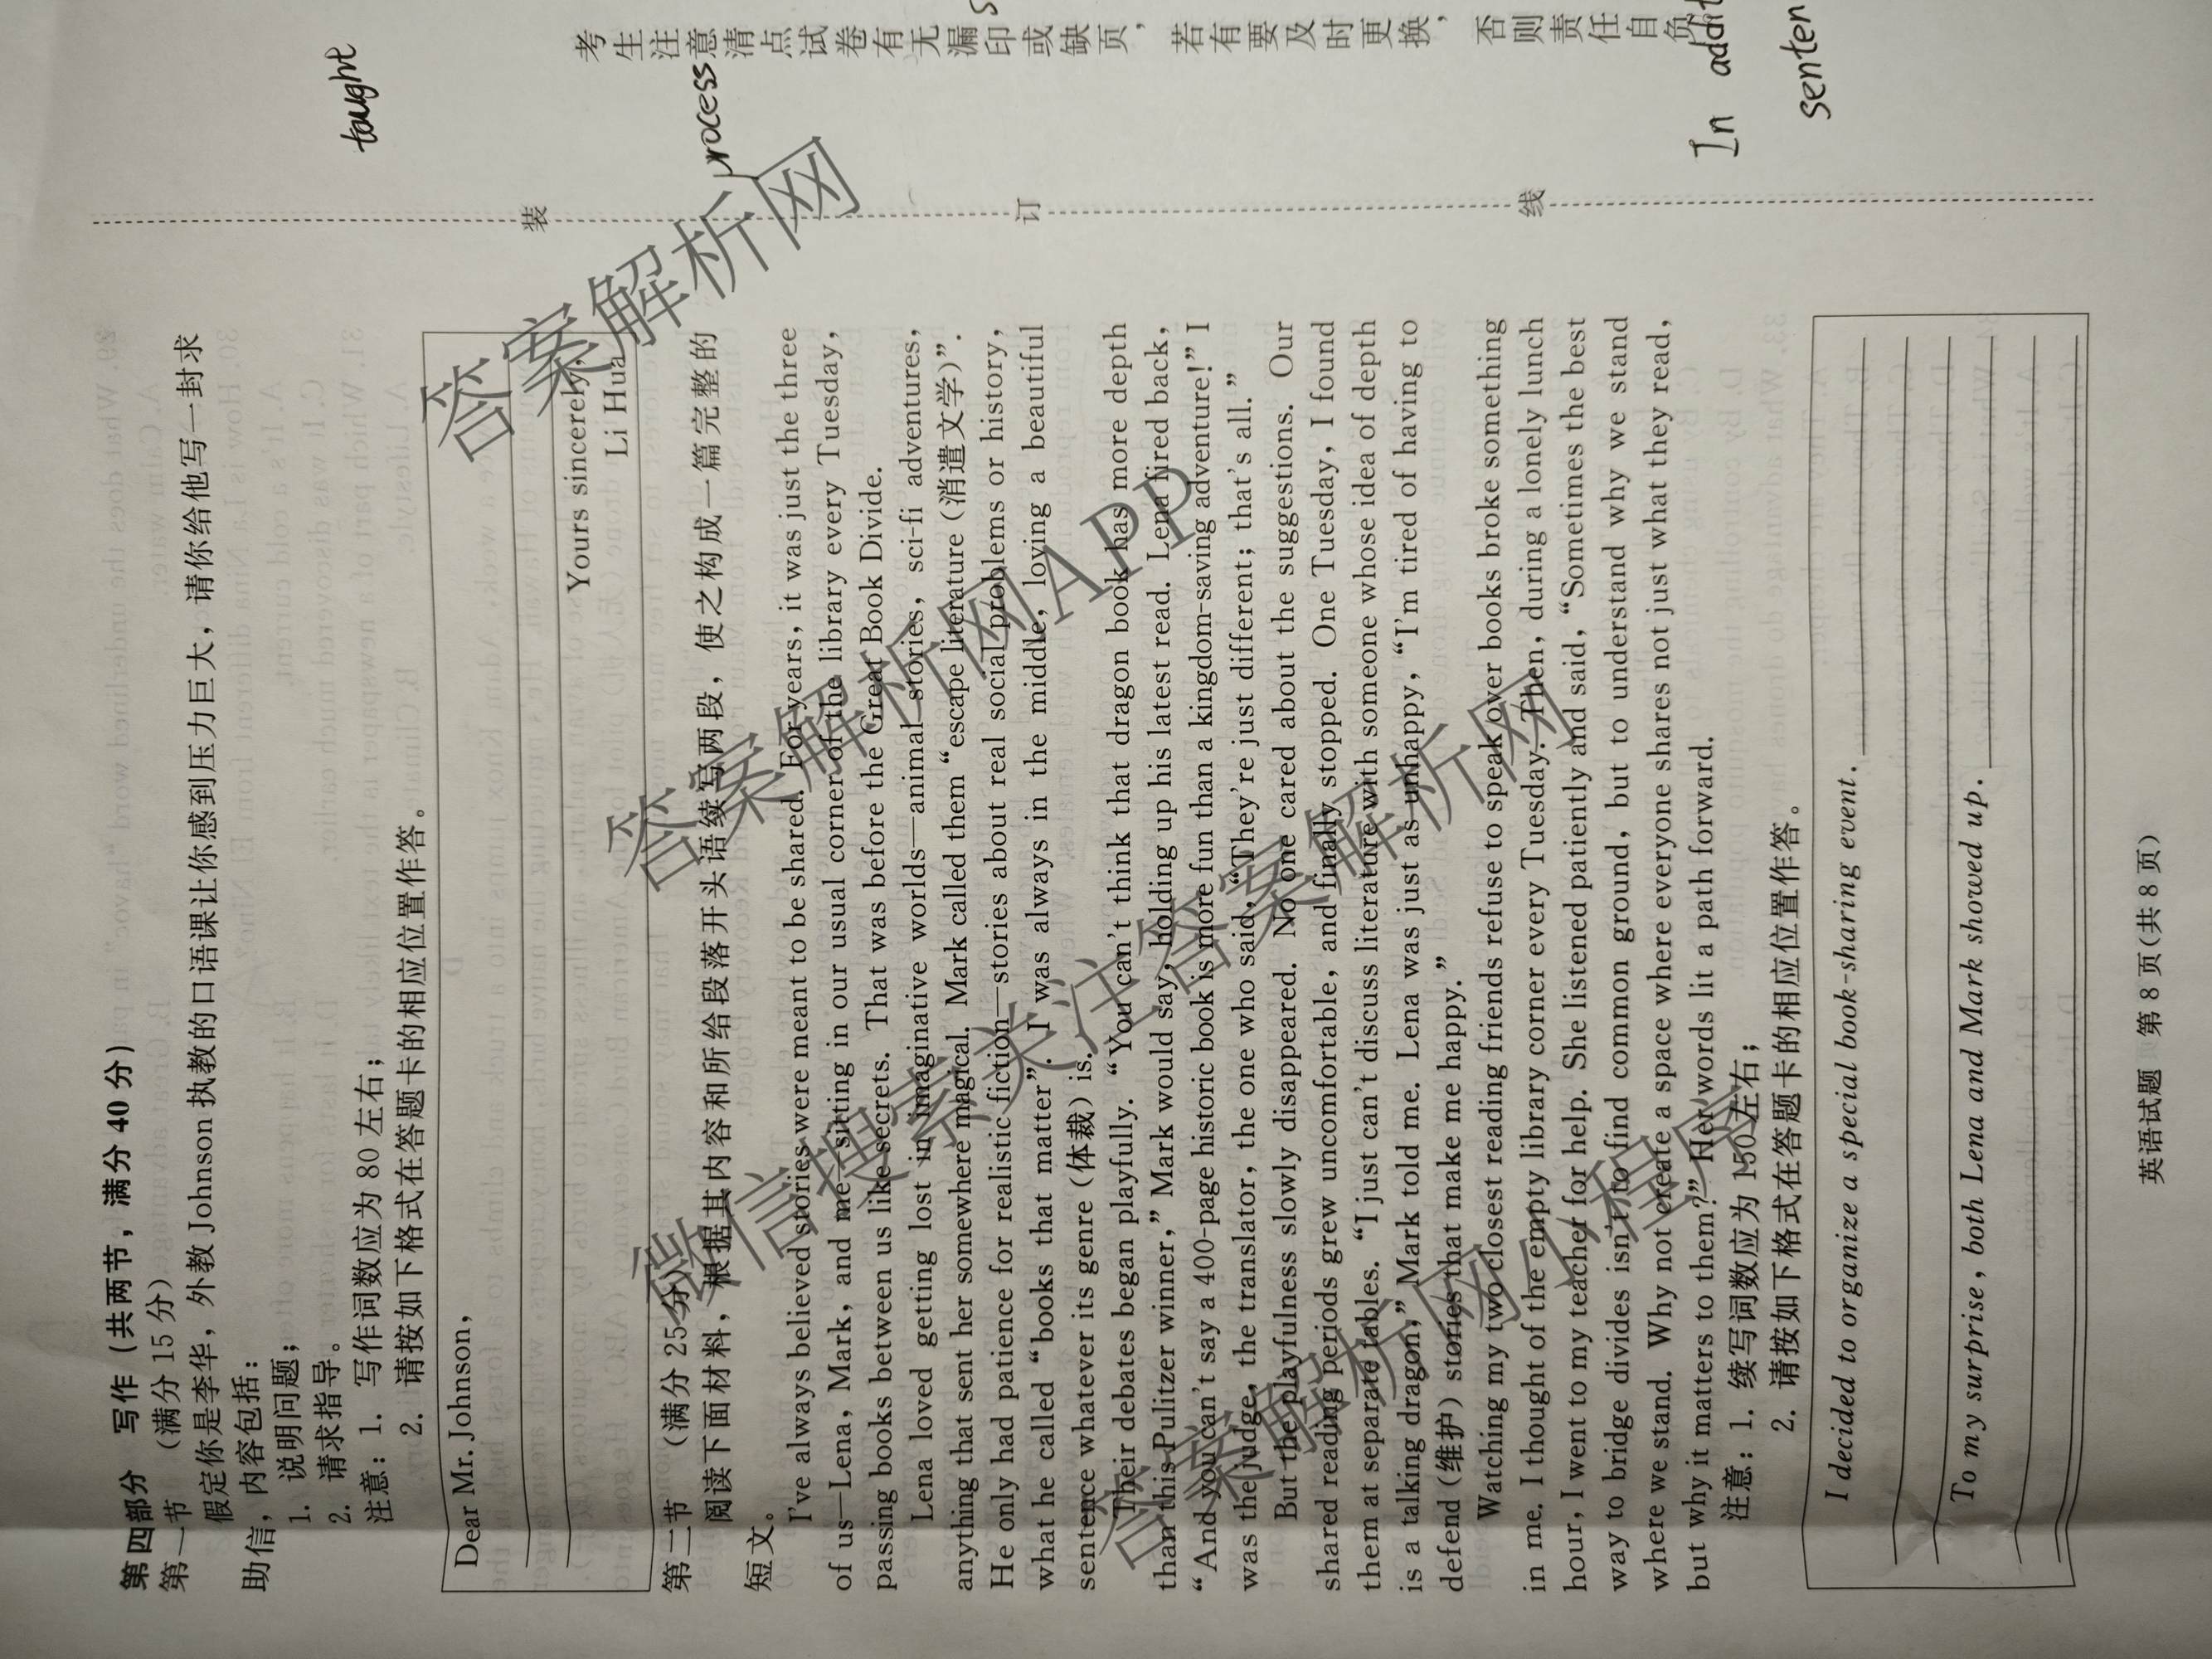 第四部分 写作（共两节，满分 40 分）
第一节 （满分 15 分）
假定你是李华，外教 Johnson 执教的口语课让你感到压力巨大，请你给他写一封求
助信，内容包括：
1. 说明问题；
2. 请求指导。
注意：1. 写作词数应为 80 左右；
2. 请按如下格式在答题卡的相应位置作答。
Dear Mr. Johnson,
Yours sincerely,
Li Hua
第二节 （满分 25 分）
阅读下面材料，根据其内容和所给段落开头语续写两段，使之构成一篇完整的
短文。
I've always believed stories were meant to be shared. For years, it was just the three
of us—Lena, Mark, and me, sitting in our usual corner of the library every Tuesday,
passing books between us like secrets. That was before the Great Book Divide.
Lena loved getting lost in imaginative worlds—animal stories, sci-fi adventures,
anything that sent her somewhere magical. Mark called them “escape literature（消遣文学）”.
He only had patience for realistic fiction—stories about real social problems or history,
what he called “books that matter”. I was always in the middle, loving a beautiful
sentence whatever its genre（体裁）is.
Their debates began playfully. “You can't think that dragon book has more depth
than this Pulitzer winner,” Mark would say, holding up his latest read. Lena fired back,
“And you can't say a 400-page historic book is more fun than a kingdom-saving adventure!” I
was the judge, the translator, the one who said, “They're just different; that's all.”
But the playfulness slowly disappeared. No one cared about the suggestions. Our
shared reading periods grew uncomfortable, and finally stopped. One Tuesday, I found
them at separate tables. “I just can't discuss literature with someone whose idea of depth
is a talking dragon,” Mark told me. Lena was just as unhappy, “I'm tired of having to
defend（维护）stories that make me happy.”
Watching my two closest reading friends refuse to speak over books broke something
in me. I thought of the empty library corner every Tuesday. Then, during a lonely lunch
hour, I went to my teacher for help. She listened patiently and said, “Sometimes the best
way to bridge divides isn't to find common ground, but to understand why we stand
where we stand. Why not create a space where everyone shares not just what they read,
but why it matters to them?” Her words lit a path forward.
注意：1. 续写词数应为 150 左右；
2. 请按如下格式在答题卡的相应位置作答。
I decided to organize a special book-sharing event.
To my surprise, both Lena and Mark showed up.
英语试题 第 8 页（共 8 页）
装 订 线
考生注意清点试卷有无漏印或缺页，若有要及时更换，否则责任自负
taught
process
In addit
senten
答案解析网
答案解析网APP
微信搜索关注答案解析网
答案解析网小程序